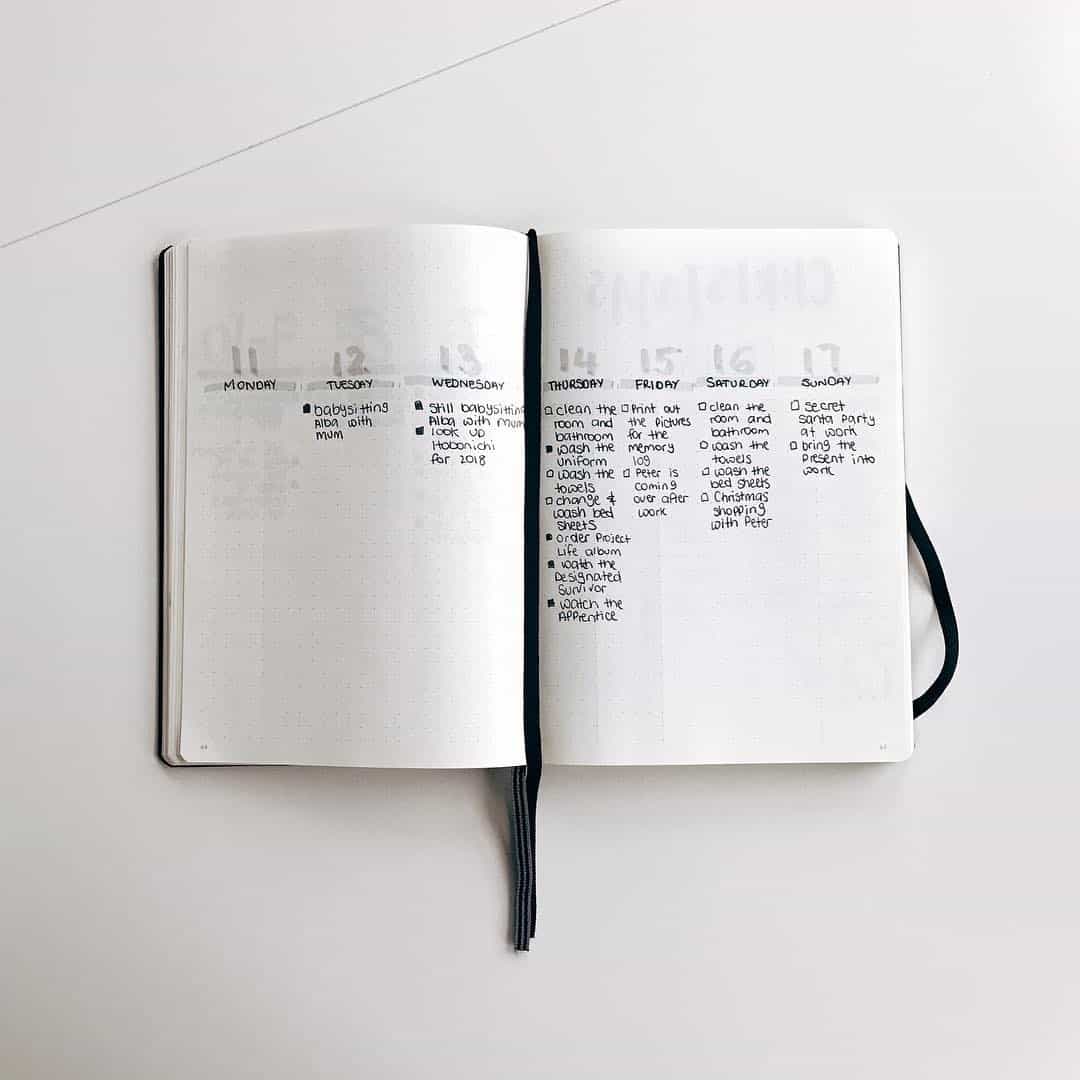 11
MONDAY
12
TUESDAY
babysitting
Alba with
mum
13
WEDNESDAY
still babysitting
Alba with mum
look up
Hobonichi
for 2018
14
THURSDAY
clean the
room and
bathroom
wash the
uniform
wash the
towels
change &
wash bed
sheets
order Project
Life album
watch the
Designated
Survivor
watch the
Apprentice
15
FRIDAY
Print out
the pictures
for the
memory
log
Peter is
coming
over after
work
16
SATURDAY
clean the
room and
bathroom
wash the
towels
wash the
bed sheets
Christmas
shopping
with Peter
17
SUNDAY
secret
santa Party
at work
bring the
Present into
work
CHRISTMAS